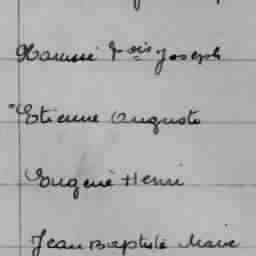 Joseph
Etienne Auguste
Eugène Henri
Jean Baptiste Marie